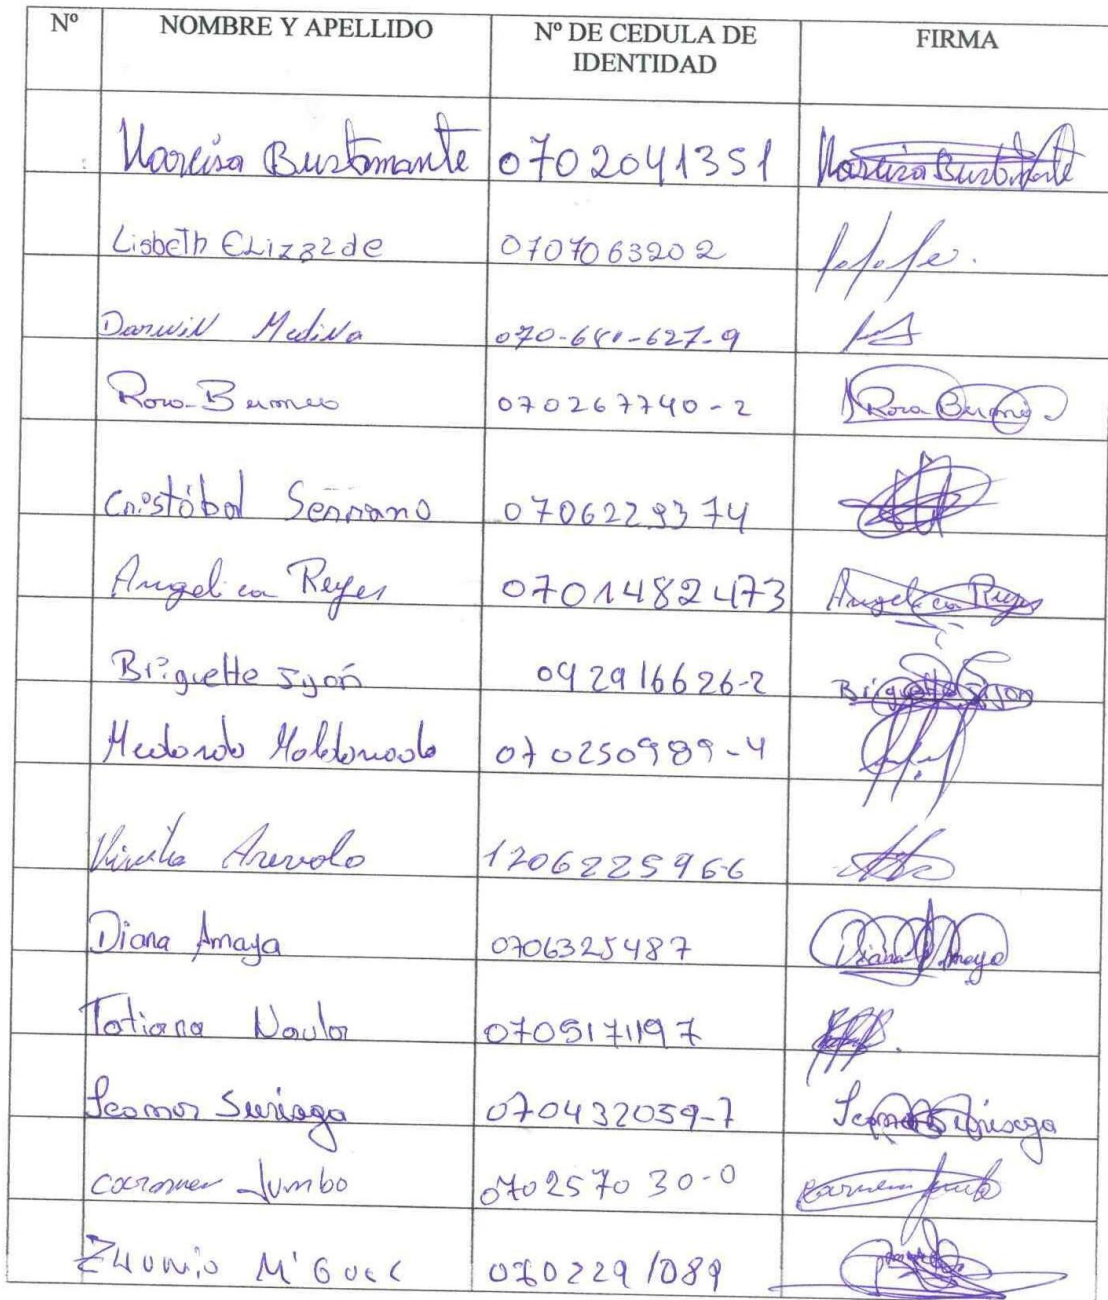 Nº NOMBRE Y APELLIDO Nº DE CEDULA DE IDENTIDAD FIRMA
Narcisa Bustamante 0702041351 Narcisa Bustamante
Lisbeth Elizalde 0707063202
Darwin Medina
Rosa Bermeo 070267740-2 Rosa Bermeo
Cristóbal Serrano 0706229374
Angelica Reyes 0701482473 Angelica Reyes
Briguette Jyón 092916626-2 Briguette Jyon
Medardo Maldonado 070250989-4
Arevalo 1206225966
Diana Amaya 0706325487 Diana Amaya
Tatiana Naula 0705171197
Suriaga 070432059-7 Suriaga
Carmen Jumbo 070257030-0 Carmen Jumbo
Zhunio Miguel 0702291089